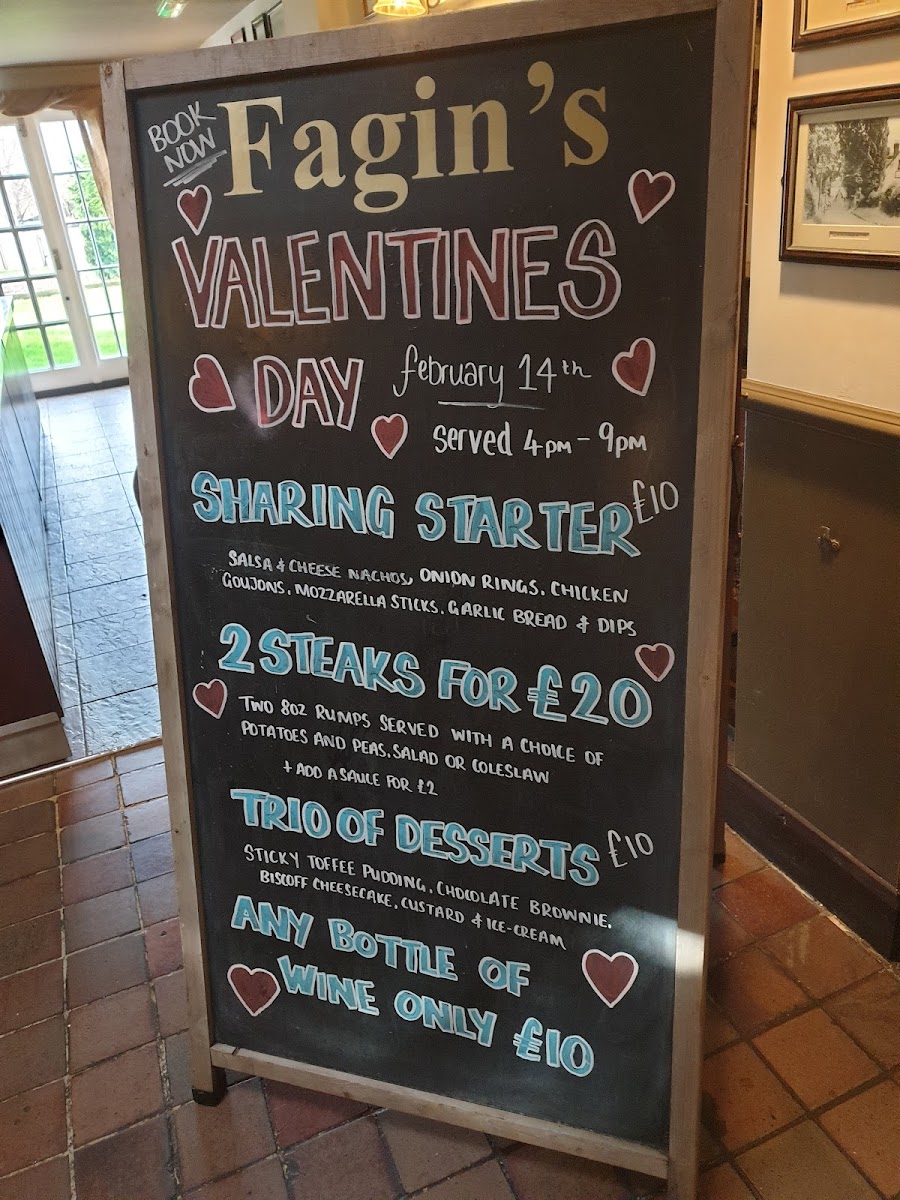 BOOK
NOW
Fagin's
VALENTINES
DAY
february 14th
served 4PM - 9PM
SHARING STARTER £10
SALSA & CHEESE NACHOS, ONION RINGS. CHICKEN
GOUJONS. MOZZARELLA STICKS. GARLIC BREAD & DIPS
2 STEAKS FOR £20
TWO 8OZ RUMPS SERVED WITH A CHOICE OF
POTATOES AND PEAS. SALAD OR COLESLAW
+ ADD A SAUCE FOR £2
TRIO OF DESSERTS £10
STICKY TOFFEE PUDDING. CHOCOLATE BROWNIE.
BISCOFF CHEESECAKE. CUSTARD & ICE-CREAM
ANY BOTTLE OF
WINE ONLY £10